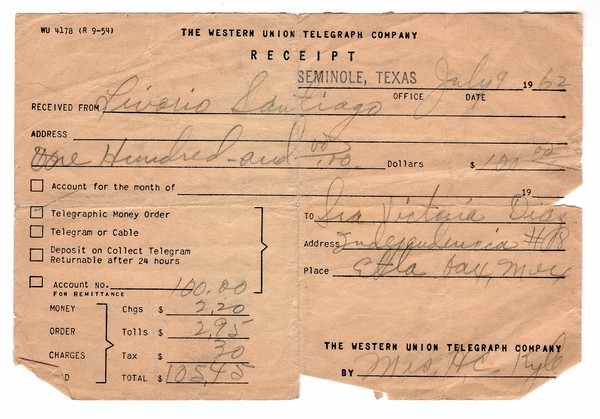 WU 4178 (R 9-54)
THE WESTERN UNION TELEGRAPH COMPANY
RECEIPT
SEMINOLE, TEXAS July 9 1962
OFFICE DATE
RECEIVED FROM Livorio Santiago
ADDRESS
One Hundred and 00/100 Dollars $ 100 00
Account for the month of 19
Telegraphic Money Order
TO Sra Victoria Diaz
Telegram or Cable
Address Independencia #18
Deposit on Collect Telegram
Returnable after 24 hours
Place Etla Oax, Mex
Account No. 100.00
FOR REMITTANCE
MONEY Chgs $ 2,20
ORDER Tolls $ 2,95
CHARGES Tax $ 30
TOTAL $ 105,45
THE WESTERN UNION TELEGRAPH COMPANY
BY Mrs, H.C. Kyle